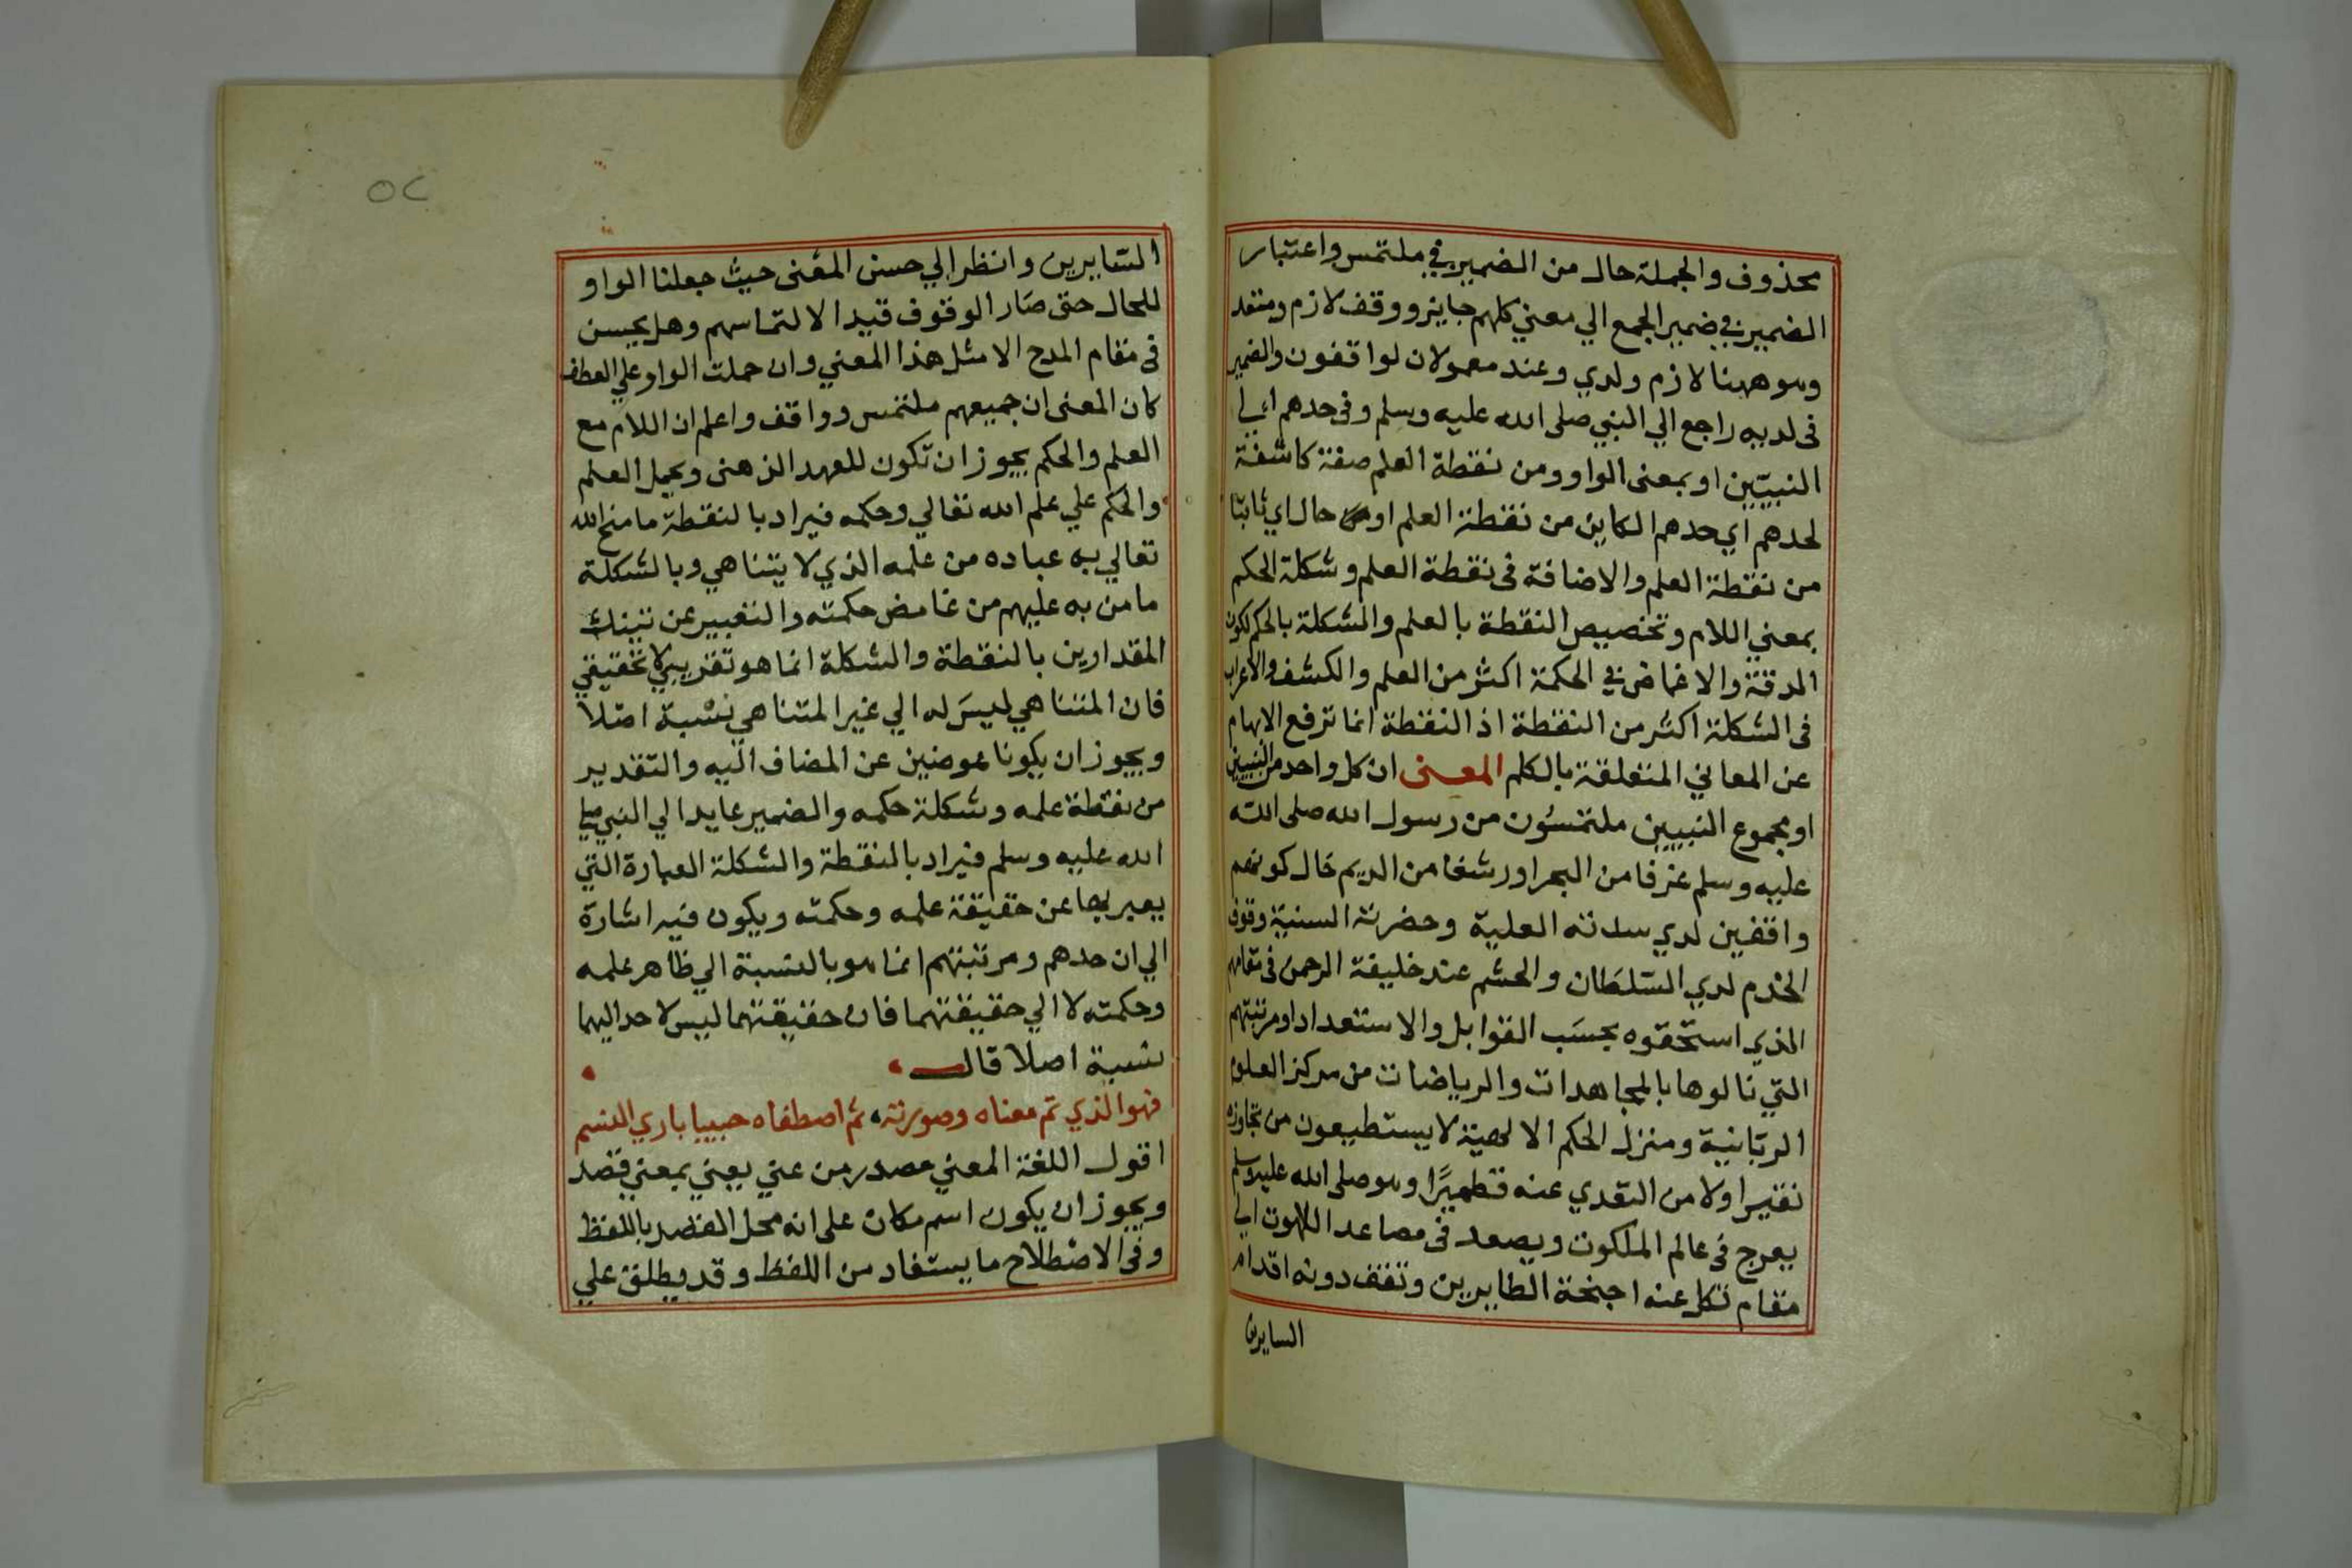 محذوف والجملة حال من الضمير في ملتمس واعتبار
الضمير في ضمير الجمع الي معني كلهم جايز ووقف لازم ومتعد
وهو ههنا لازم ولدي وعند معمولان لواقفون والضمير
فى لديه راجع الي النبي صلى الله عليه وسلم وفى حدهم الي
النبيّين او بمعنى الواو ومن نقطة العلم صفة كاشفة
لحدهم اي حدهم الكاين من نقطة العلم او حال اي ثابتا
من نقطة العلم والاضافة فى نقطة العلم وشكلة الحكم
بمعني اللام وتخصيص النقطة بالعلم والشكلة بالحكم لكون
الدقة والاغماض في الحكمة اكثر من العلم والكشف والاعراب
فى الشكلة اكثر من النقطة اذ النقطة انما ترفع الابهام
عن المعاني المتعلقة بالكلم المعنى ان كل واحد من النبيين
او مجموع النبيين ملتمسُون من رسول الله صلى الله
عليه وسلم غرفا من البحر او رشفا من الديم حال كونهم
واقفين لدي سدته العلية وحضرته السنية وقوف
الخدم لدي السّلطان والحشم عند خليفة الرحمن فى مقامهم
الذي استحقوه بحسَب القوابل والاستعداد او مرتبتهم
التي نالوها بالمجاهدات والرياضات من مركز العلوم
الربّانية ومنزل الحكم الالهية لا يستطيعون من تجاوزه
نقيرا ولا من التعدي عنه قطميرًا وهو صلى الله عليه وسلم
يعرج فى عالم الملكوت ويصعد فى مصاعد اللاهوت الي
مقام تكل عنه اجنحة الطايرين وتقف دونه اقدام
السايرين
٥٢
السايرين وانظر الي حسن المعنى حيث جعلنا الواو
للحال حتى صَار الوقوف قيدا لالتماسهم وهل يحسن
فى مقام المدح الا مثل هذا المعني وان حملت الواو علي العطف
كان المعنى ان جميعهم ملتمس وواقف واعلم ان اللام مع
العلم والحكم يجوز ان تكون للعهد الذهنى ويحمل العلم
والحكم علي علم الله تعالي وحكمه فيراد بالنقطة ما منح الله
تعالي به عباده من علمه الذي لا يتناهي وبالشكلة
ما من به عليهم من غامض حكمته والتعبير عن تينك
المقدارين بالنقطة والشكلة انما هو تقريبي لا تحقيقي
فان المتناهي ليسَ له الي غير المتناهي نسْبة اصْلا
ويجوز ان يكونا عوضين عن المضاف اليه والتقدير
من نقطة علمه وشكلة حكمه والضمير عايد الي النبي صلي
الله عليه وسلم فيراد بالنقطة والشكلة العبارة التي
يعبر بها عن حقيقة علمه وحكمته ويكون فيه اشارة
الي ان حدهم ومرتبتهم انما هو بالنسبة الي ظاهر علمه
وحكمته لا الي حقيقتهما فان حقيقتهما ليس لاحد اليهما
نسبة اصلا قال
فهو الذي تم معناه وصورته، ثم اصطفاه حبيبا باري النسم
اقول اللغة المعني مصدر من عني يعني بمعني قصد
ويجوز ان يكون اسم مكان على انه محل القصد باللفظ
وفى الاصْطلاح ما يستفاد من اللفظ وقد يطلق علي